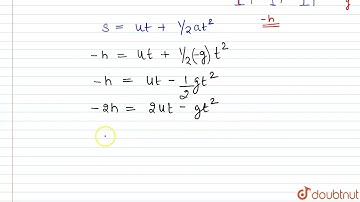 -h
s = ut + 1/2 at²
-h = ut + 1/2 (-g) t²
-h = ut - 1/2 gt²
-2h = 2ut - gt²
doubtnut